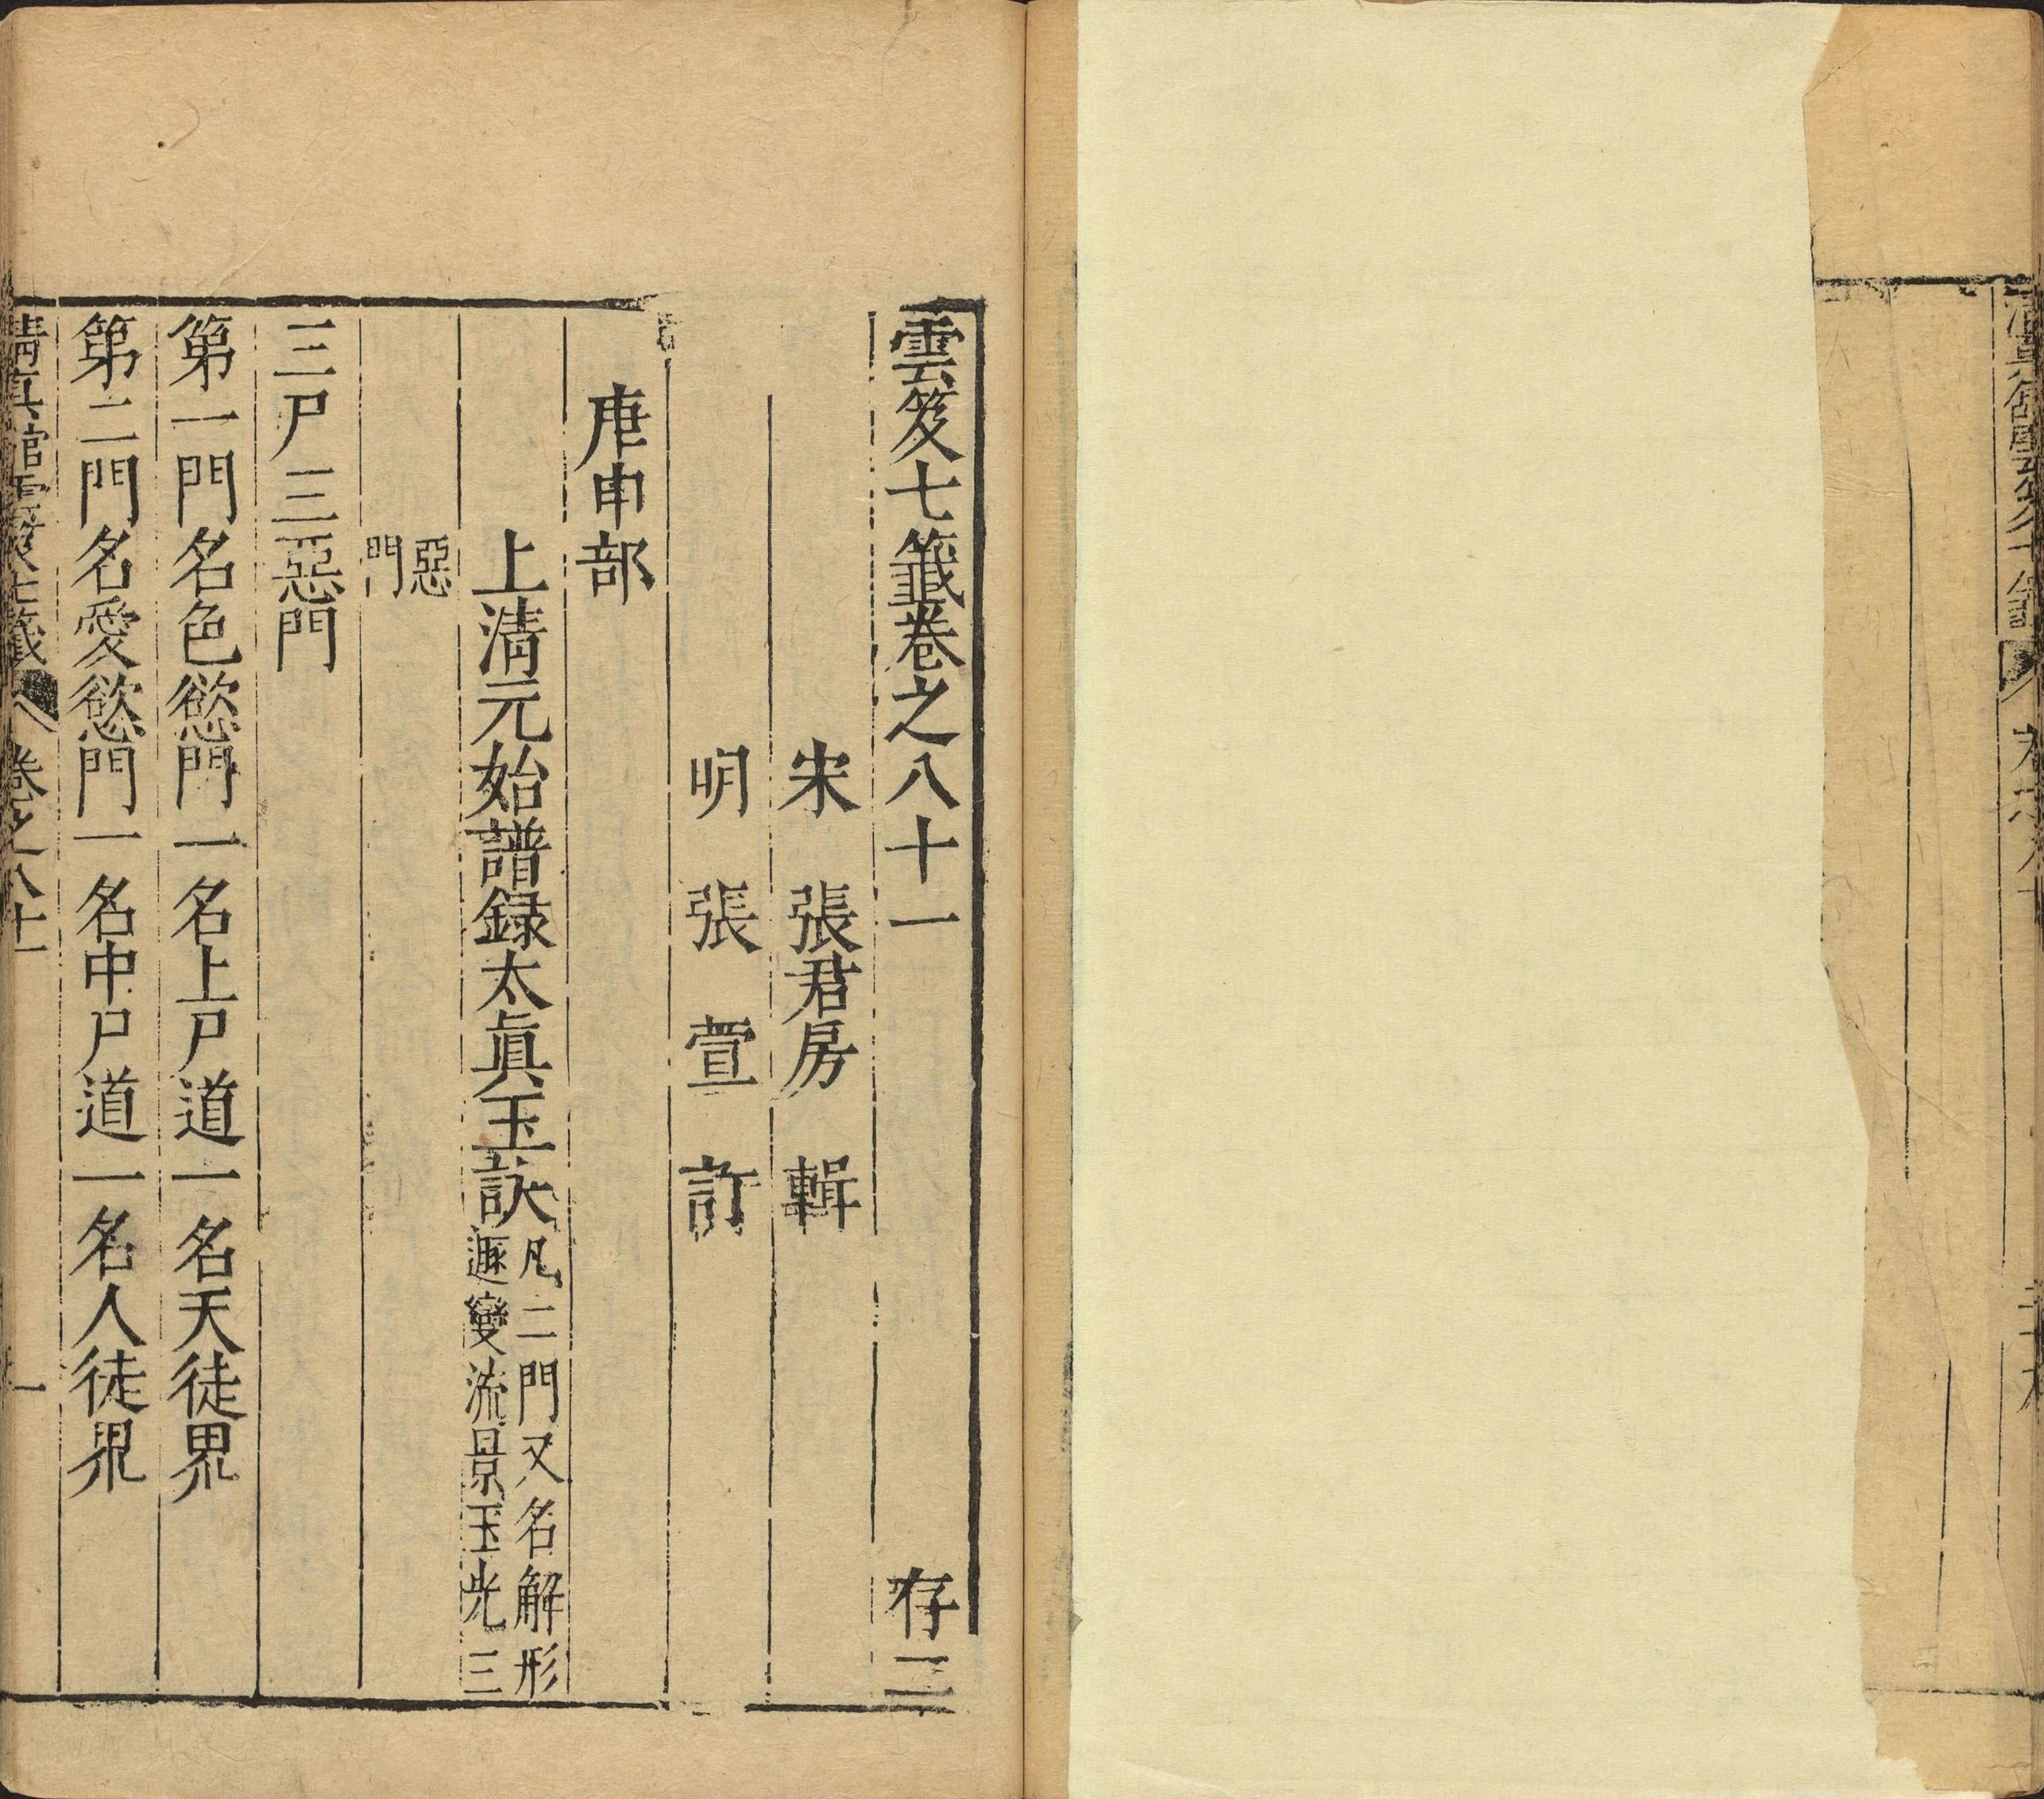 雲笈七籤卷之八十一 存二
宋 張君房 輯
明 張萱 訂
庚申部
上清元始譜錄太眞玉訣凡二門又名解形
遯變流景玉光三
惡
門
三尸三惡門
第一門名色慾門一名上尸道一名天徒界
第二門名愛慾門一名中尸道一名人徒界
清真館雲笈七籤 卷之八十一 一